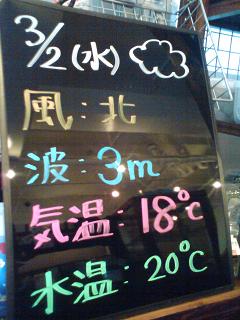 3/2(水)
風：北
波：3m
気温：18℃
水温：20℃